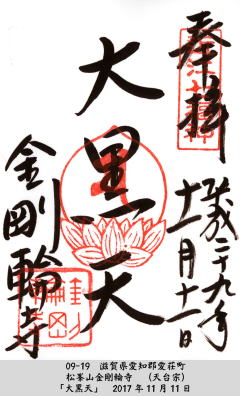 奉拝
平成二十九年
十一月十一日
大黒天
金剛輪寺
09-19 滋賀県愛知郡愛荘町
松峯山金剛輪寺 (天台宗)
「大黒天」 2017年11月11日